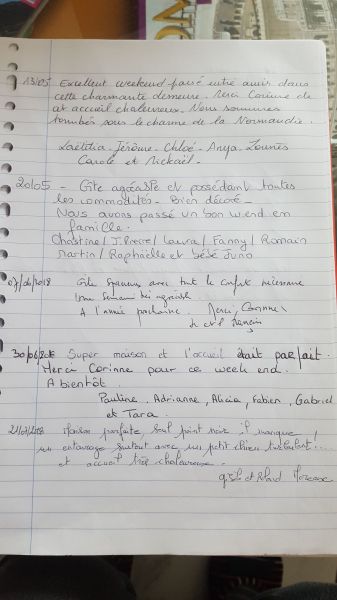 13/05 Excellent weekend passé entre amis dans
cette charmante demeure. Merci Corinne de
cet accueil chaleureux. Nous sommes
tombés sous le charme de la Normandie.
Laëtitia - Jérôme - Chloé - Anya - Lounès
Carole et Mickaël.
20/05 - Gîte agréable et possédant toutes
les commodités - Bien décoré -
Nous avons passé un bon w.end en
famille.
Christine / J. Pierre / Laura / Fanny / Romain
Martin / Raphaëlle et bébé Juno
07/06/2018 Gîte spacieux avec tout le confort nécessaire
Une semaine très agréable
A l'année prochaine. Merci Corinne
30/06/ Super maison et l'accueil était parfait.
Merci Corinne pour ce week end.
A bientôt.
Pauline, Adrianne, Alicia, Fabien, Gabriel
et Tara.
maison parfaite seul point noir il manque
un entourage surtout avec un petit chien turbulent!...
et accueil très chaleureuse.